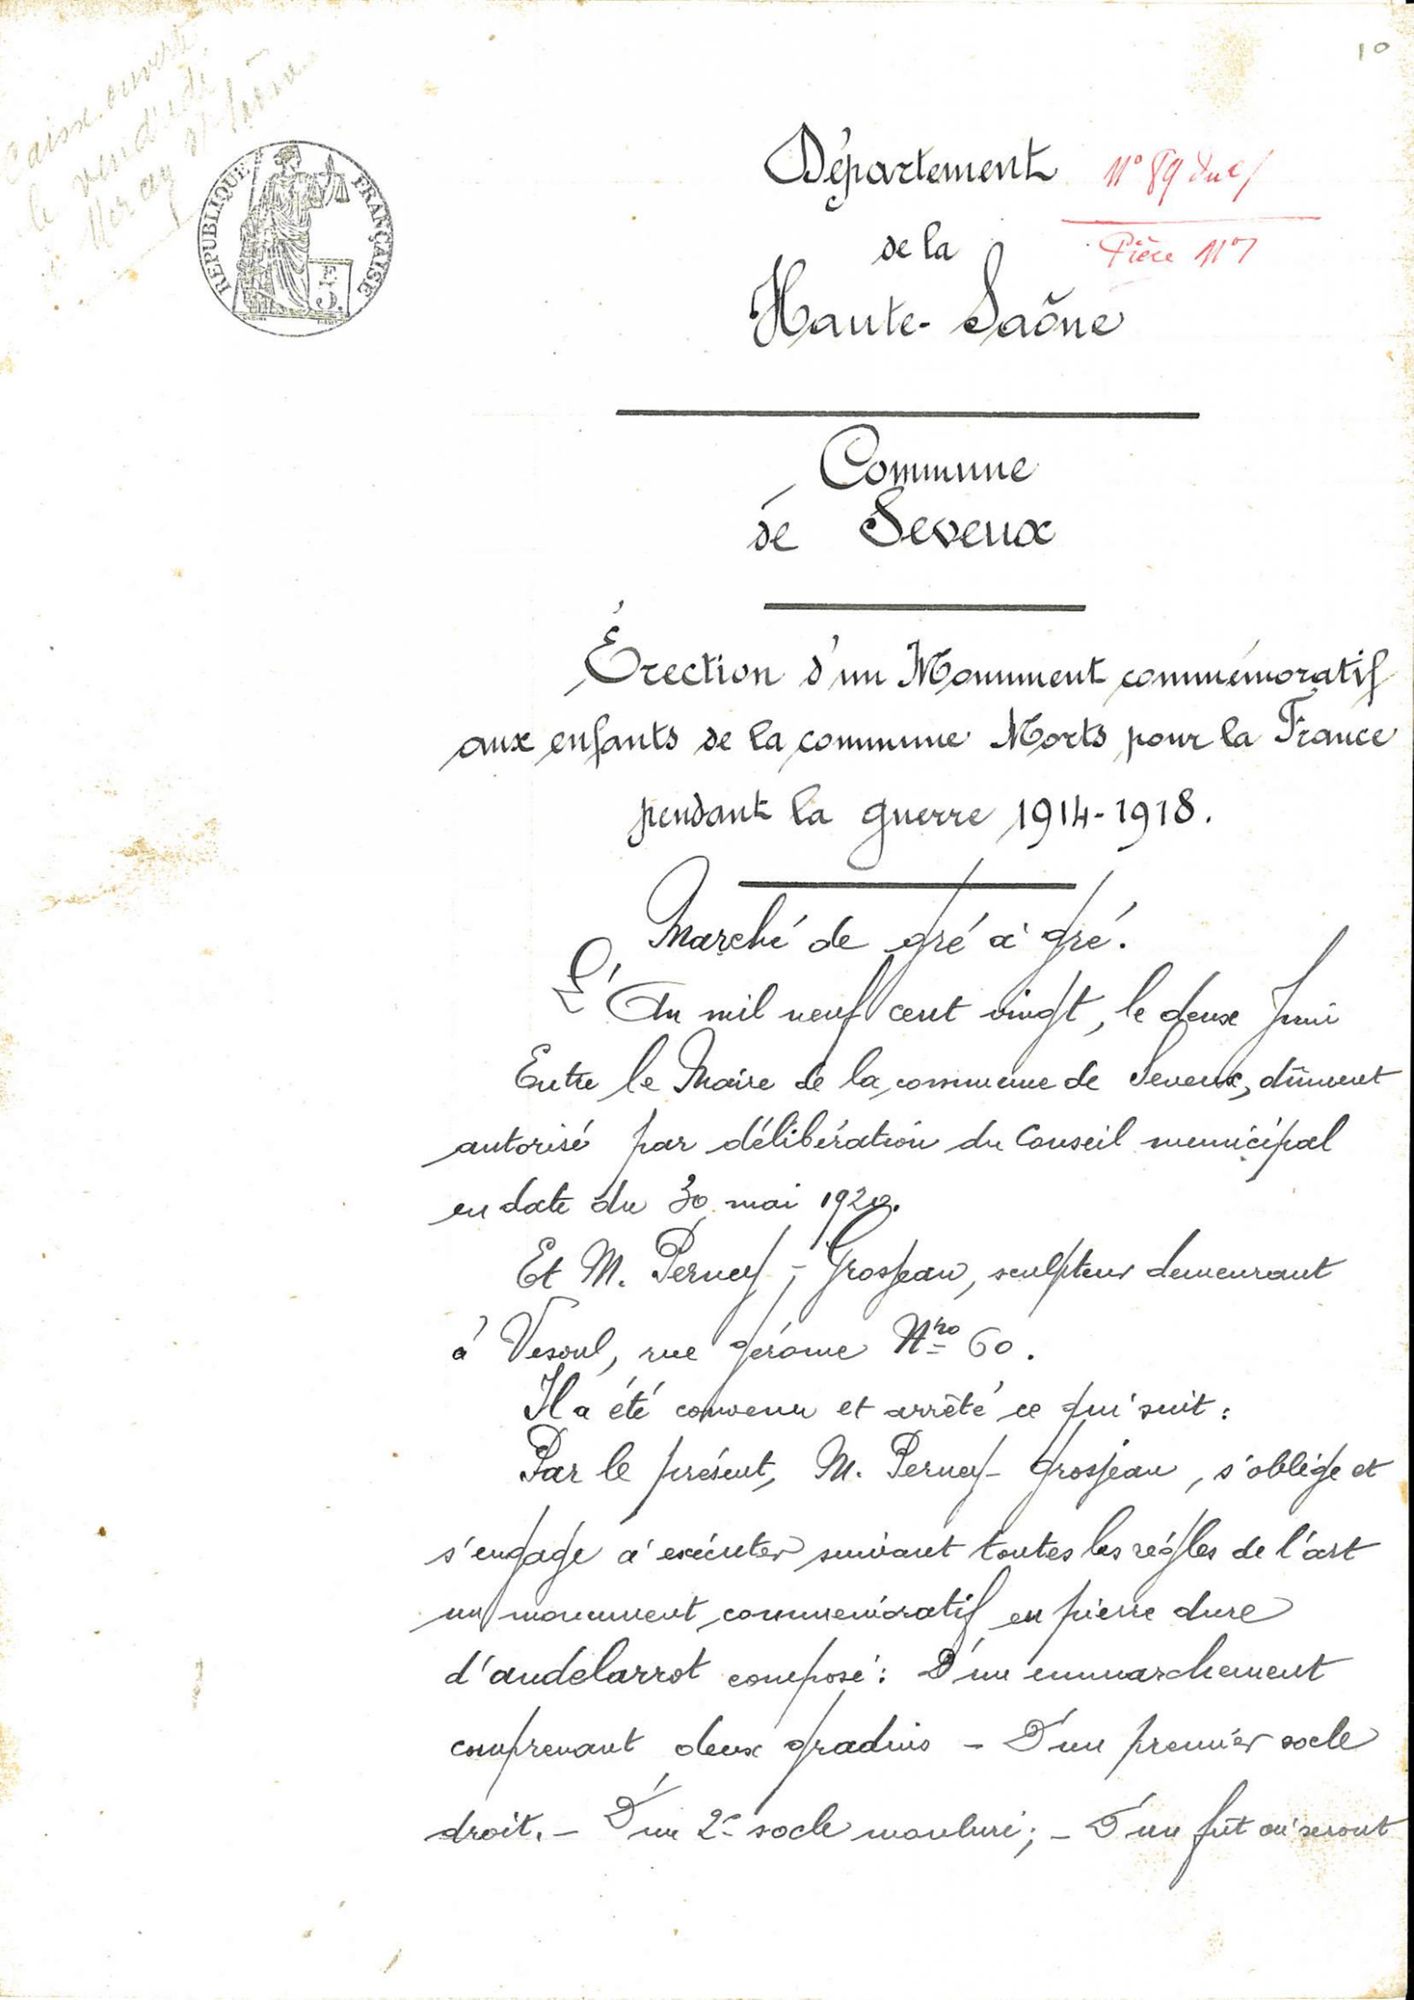 10
Caisse ouverte
le vendredi
à Mercey s/ Saône
RÉPUBLIQUE FRANÇAISE
Département
N° 89
de la
Pièce N° 7
Haute-Saône
Commune
de Seveux
Érection d'un Monument commémoratif
aux enfants de la commune Morts pour la France
pendant la guerre 1914-1918.
Marché de gré à gré.
L'An mil neuf cent vingt, le deux Juin
Entre le Maire de la commune de Seveux, dûment
autorisé par délibération du Conseil municipal
en date du 30 mai 1920.
Et M. Perney-Grosjean, sculpteur demeurant
à Vesoul, rue Gérome Nro 60.
Il a été convenu et arrêté ce qui suit :
Par le présent, M. Perney-Grosjean, s'oblige et
s'engage à exécuter suivant toutes les règles de l'art
un monument commémoratif en pierre dure
d'andelarrot composé : D'un emmarchement
comprenant deux gradins - D'un premier socle
droit. - D'un 2e socle mouluré ; - D'un fût où seront